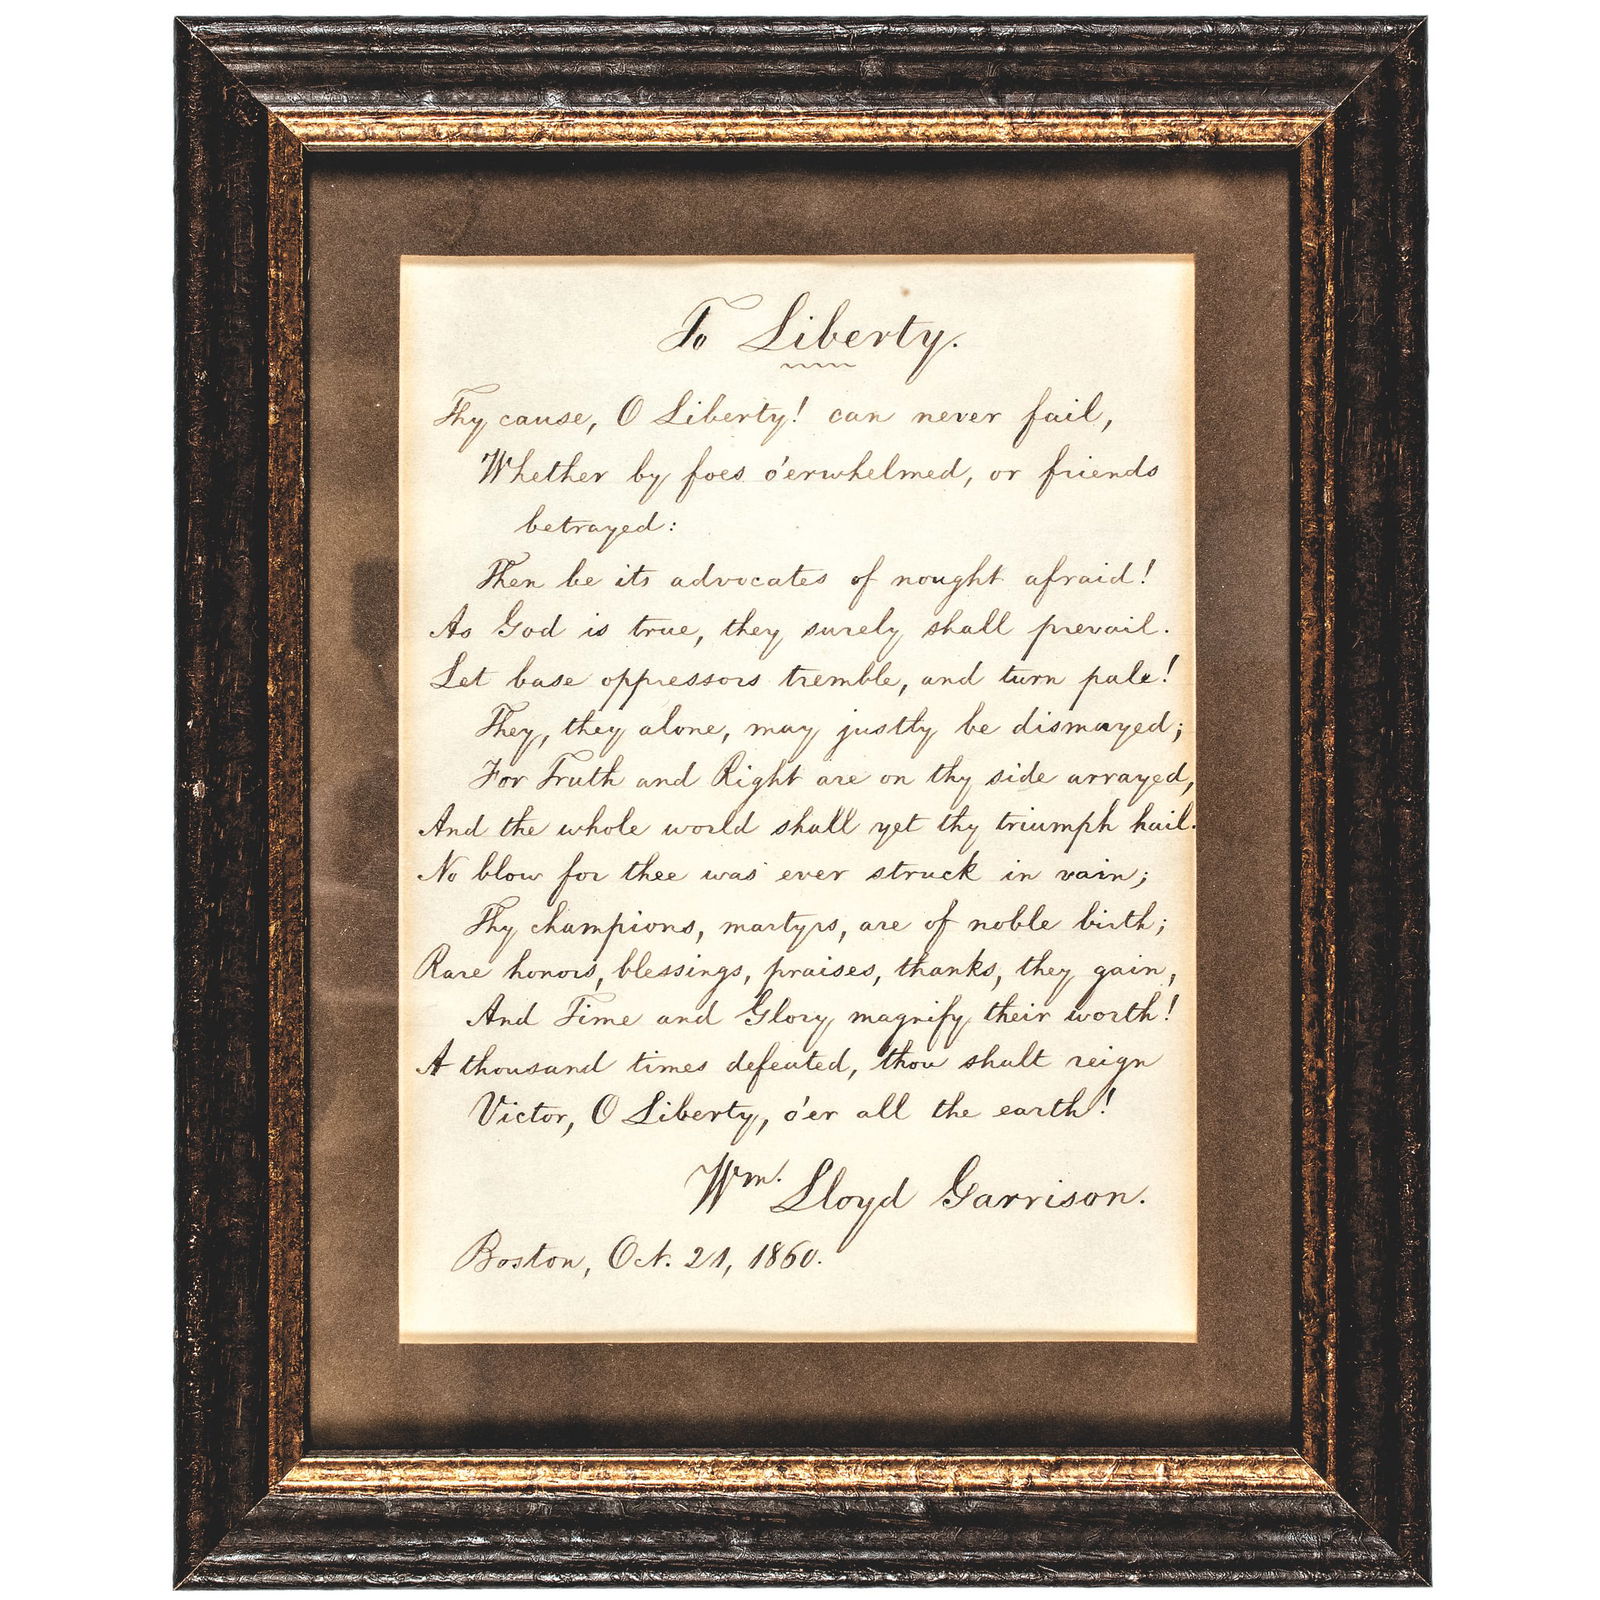 To Liberty.
Thy cause, O Liberty! can never fail,
Whether by foes o'erwhelmed, or friends
betrayed:
Then be its advocates of nought afraid!
As God is true, they surely shall prevail.
Let base oppressors tremble, and turn pale!
They, they alone, may justly be dismayed;
For Truth and Right are on thy side arrayed,
And the whole world shall yet thy triumph hail.
No blow for thee was ever struck in vain;
Thy champions, martyrs, are of noble birth;
Rare honors, blessings, praises, thanks, they gain,
And Time and Glory magnify their worth!
A thousand times defeated, thou shalt reign
Victor, O Liberty, o'er all the earth!
Wm. Lloyd Garrison.
Boston, Oct. 21, 1860.